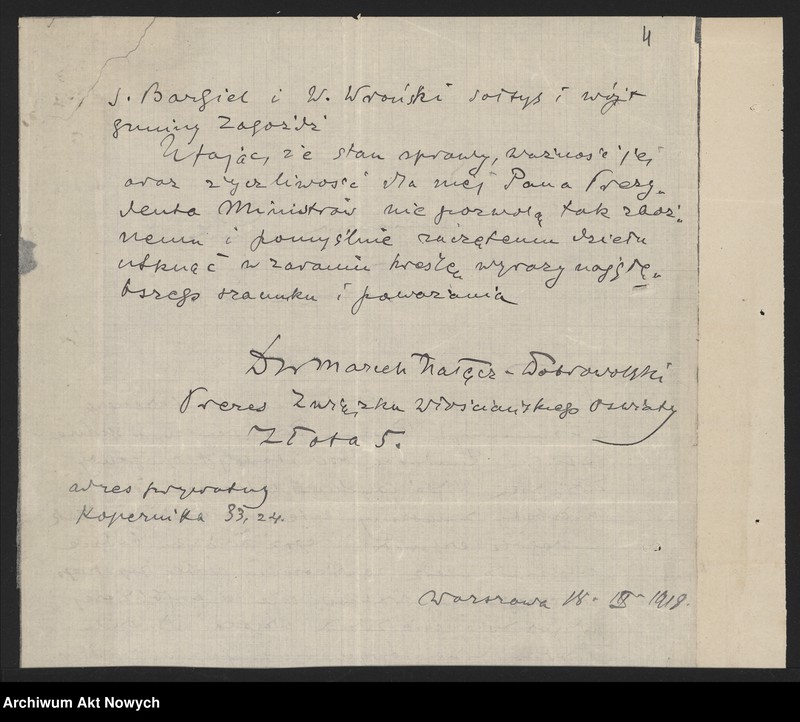 4
J. Bargiel i W. Wroński sołtys i wójt
gminy Zagoźdź
Ufając, że stan sprawy, ważność jej
oraz życzliwość dla niej Pana Prezy-
denta Ministrów nie pozwolą tak zboż-
nemu i pomyślnie zaczętemu dziełu
utknąć w zaraniu kreślę wyrazy najgłę-
bszego szacunku i poważania
Dr Maryan Nałęcz-Dobrowolski
Prezes Związku Włościańskiego Oświaty
Złota 5.
adres prywatny
Kopernika 33, 24.
Warszawa 18. III 1918.
Archiwum Akt Nowych